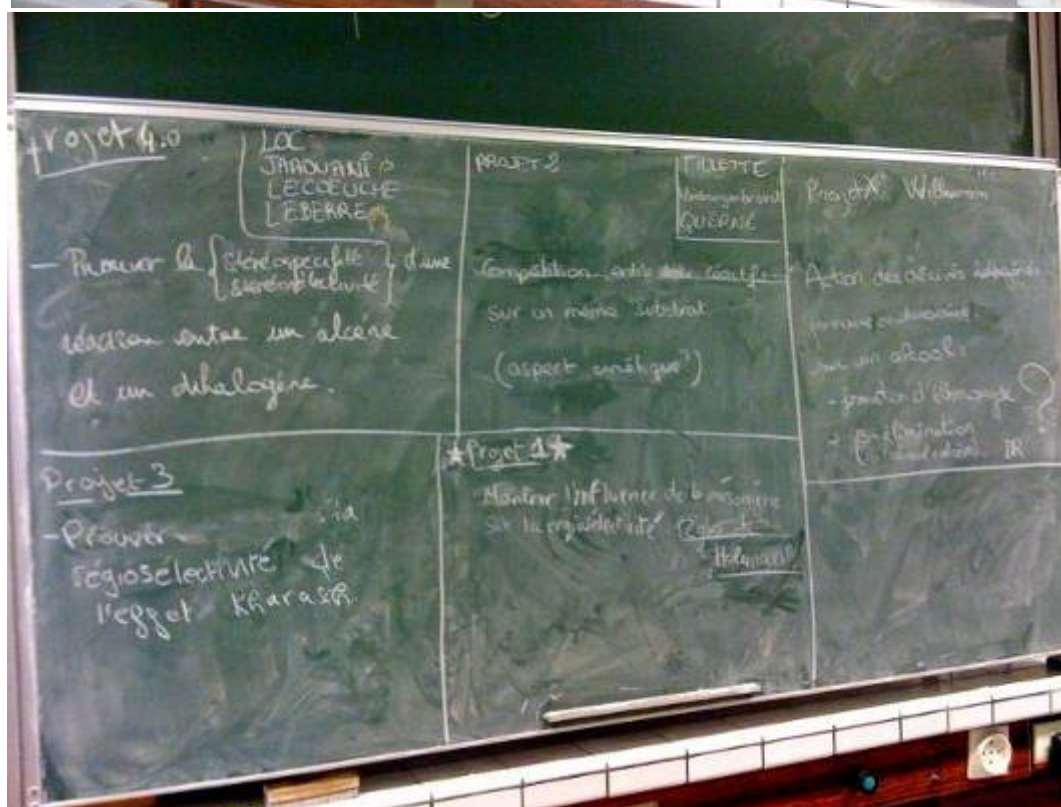 Projet 4.0
LOC
JAAOUANI
LECOEUCHE
LEBERRE
- Prouver la { stéréospécifté } d'une
stéréosélectivité
réaction entre un alcène
et un dihalogène.
PROJET 2
TILLETTE
QUERNÉ
Compétition entre réactifs
sur un même substrat
(aspect cinétique ?)
Projet X : Williamson
Action des dérivés
sur un alcool :
- formation d'
élimination
IR
?
Projet 3
- Prouver la
régiosélectivité de
l'effet Kharasch.
★ Projet 1 ★
Montrer l'influence de la mésomérie
sur la régiosélectivité Règle de